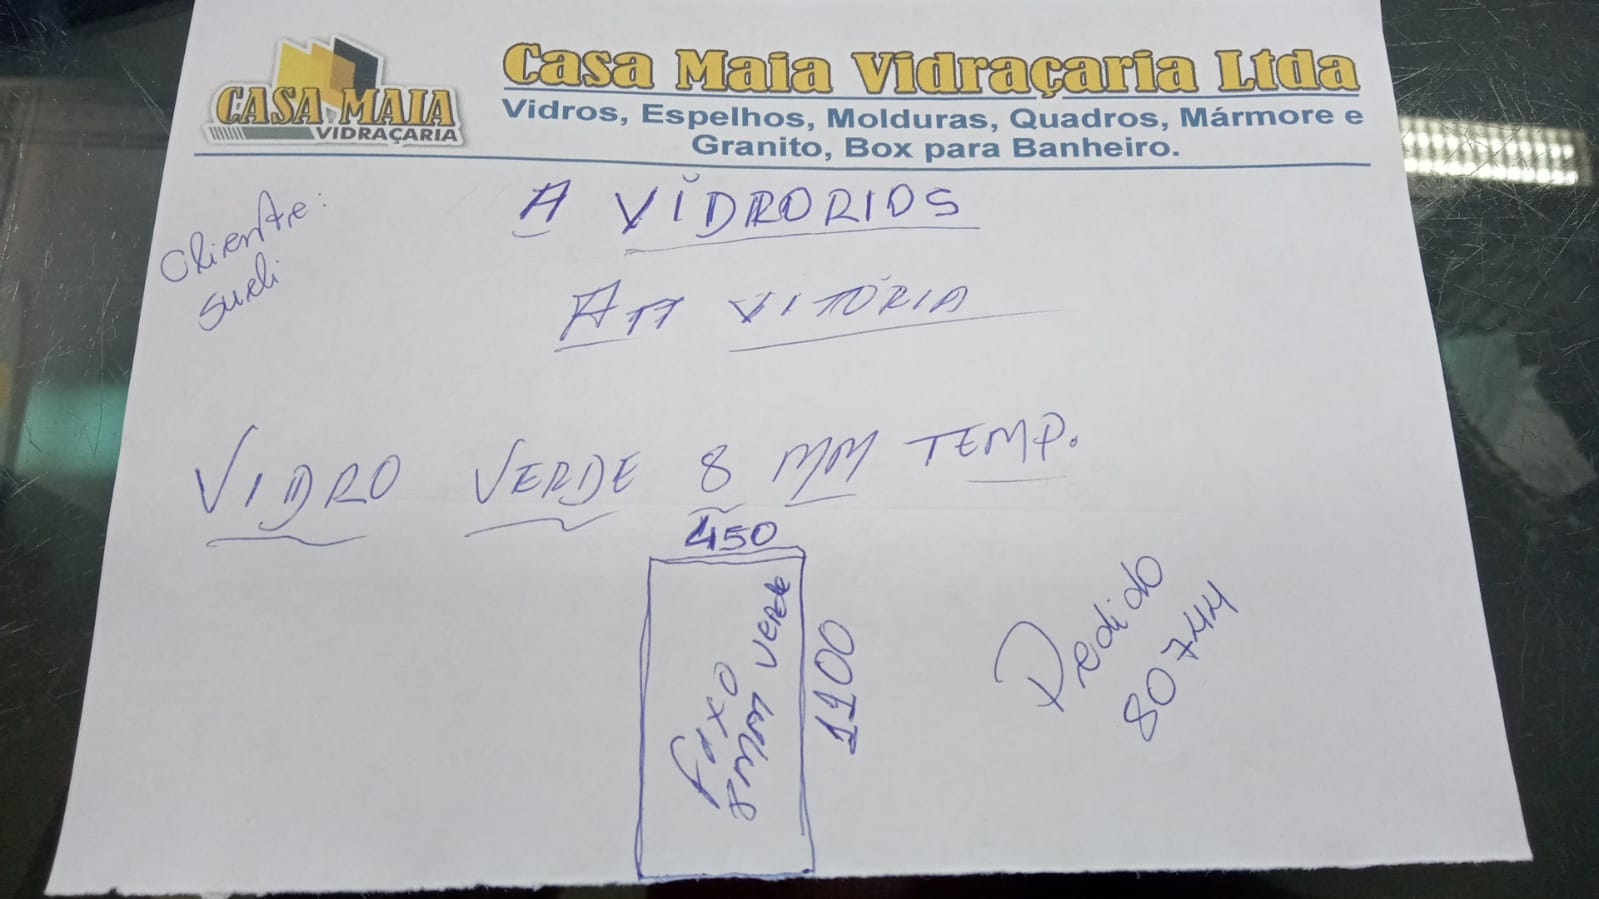 CASA MAIA
VIDRAÇARIA
Casa Maia Vidraçaria Ltda
Vidros, Espelhos, Molduras, Quadros, Mármore e
Granito, Box para Banheiro.
Cliente:
Sueli
A VIDRORIOS
ATT VITÓRIA
VIDRO VERDE 8 MM TEMP.
450
Fixo
8MM VERDE
1100
Pedido
80744